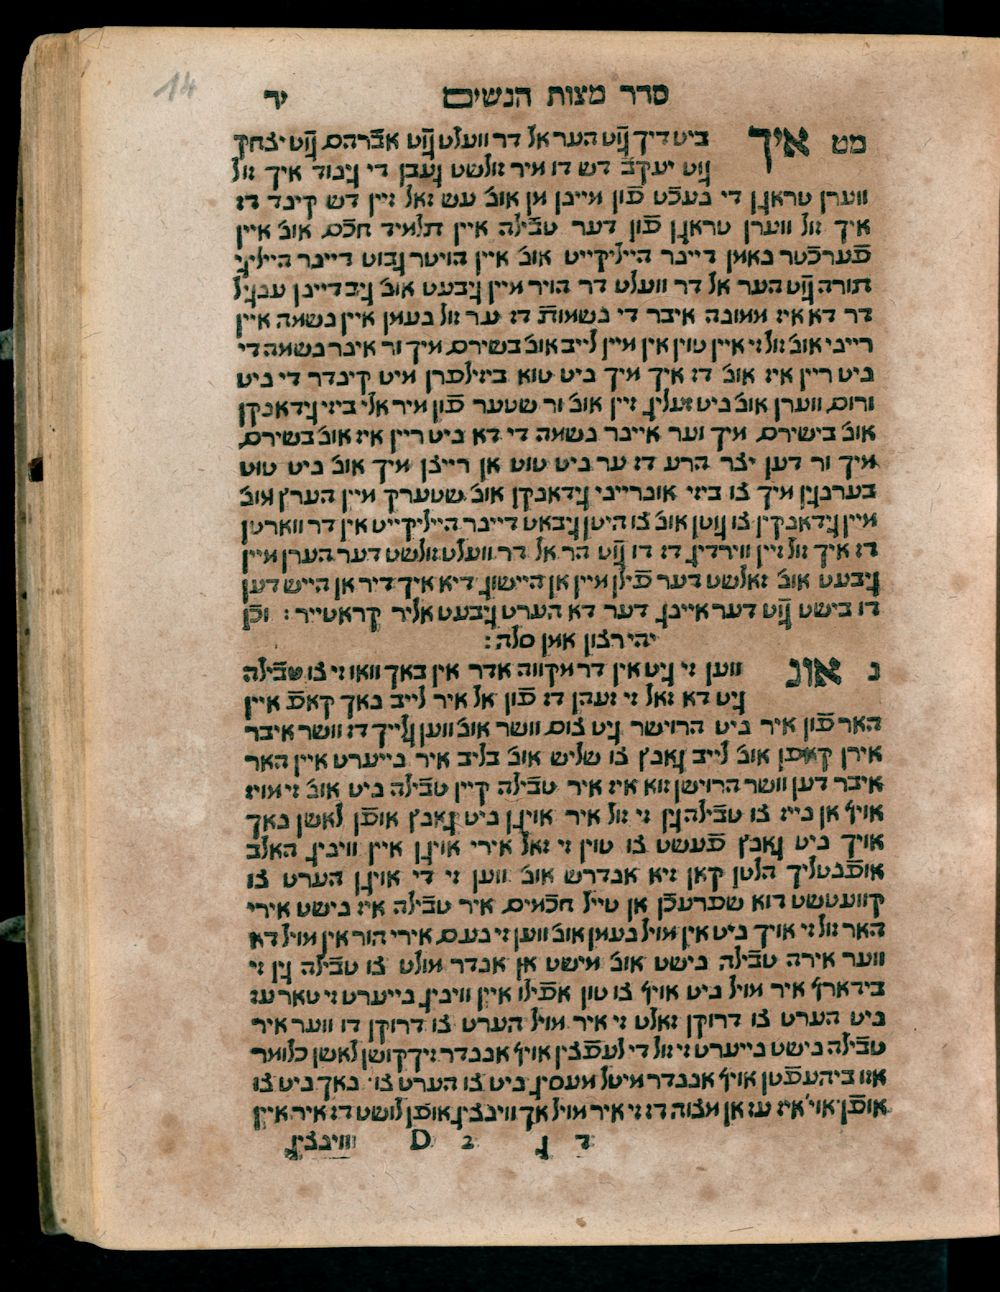 14
סדר מצות הנשים יד
מט איך ביט דיך גֿוט הער אל דר וועלט גֿוט אברהם גֿוט יצחק
גֿוט יעקבֿ דש דו מיר זולשט געבן די גינוד איך זול
ווערן טראגן די נעכֿט פֿון מיינן מן אונ' עש זאל זיין דש קינד דז
איך זול ווערן טראגן פֿון דער טבֿילה איין תלמיד חכֿם אונ' איין
פֿערכֿטר נאמן דיינר הייליקייט אונ' איין הויטר גבוט דיינר הייליגי
תורה גֿוט הער אל דר וועלט דר הויר מיין גיבעט אונ' גיבדיינן ענגיל
דר דא איז ממונה איבר די נשמות דז ער זול נעמן איין נשמה איין
רייני אונ' זול זי איין טוין אין מיין לייב אונ' בשירם מיך ור אינר נשמה די
ניט ריין איז אונ' דז איך מיך ניט טוא ביזילפרן מיט קינדר די ניט
ורום ווערן אונ' ניט זעליג זיין אונ' ור שטער פֿון מיר אלי ביזי גידאנקן
אונ' בישירם מיך וער איינר נשמה די דא ניט ריין איז אונ' בשירם
מיך ור דען יצר הרע דז ער ניט טוט אן רייצן מיך אונ' ניט טוט
בערנגן מיך צו ביזי אונרייני גידאנקן אונ' שטערק מיין הערץ אונ'
מיין גידאנקין צו גוטן אונ' צו היטן גיבאט דיינר הייליקייט אין דר ווארטן
דז איך זול זיין ווירדיג דז דו גֿוט הר אל דר וועלט זולשט דער הערן מיין
גיבעט אונ' זאלשט דער פֿילן מיין אן היישונג דיא איך דיר אן הייש דען
דו בישט גֿוט דער איינג דער דא הערט גיבעט אליר קראטייר : וכֿן
יהי רצון אמן סלה :
נ אונ' ווען זי גיט אין דר מקווה אדר אין באך וואו זי צו טבֿילה
גיט דא זאל זי זעהן דז פֿון אל איר לייב נאך קאפֿ איין
האר פֿון איר ניט הרוישר גיט צום וושר אונ' ווען גלייך דז וושר איבר
אירן קאפֿן אונ' לייב גאנץ צו שליש אונ' בליב איר נייערט איין האר
איבר דען וושר הרוישן זוא איז איר טבֿילה קיין טבֿילה ניט אונ' זי מויז
אויף אן נייז צו טבֿילה גין זי זול איר אויגן ניט גאנץ אופֿן לאשן נאך
אויך ניט גאנץ פֿעשט צו טוין זי זאל אירי אויגן איין ווינג האלב
אופֿנטליך הלטן קאן זיא אנדרש אונ' ווען זי די אויגן הערט צו
קוועטשט דוא שפרעכֿן אן טייל חכֿמים איר טבֿילה איז נישט אירי
האר זול זי אויך ניט אין מויל נעמן אונ' ווען זי נעם אירי הור אין מויל דא
ווער אירה טבֿילה נישט אונ' מישט אן אנדר מולט צו טבֿילה גין זי
בידארף איר מויל ניט אויף צו טון אפֿילו איין ווינג נייערט זי טאר עז
ניט הערט צו דרוקן זאלט זי איר מויל הערט צו דרוקן דו ווער איר
טבֿילה נישט נייערט זי זול די לעפֿצין אויף אננדר זיך קושן לאשן כלומר
אזו ביהעפֿטן אויף אננדר מיטל מעסיג ניט צו הערט צו נאך ניט צו
אופֿן אוי' איז עז אן מצוה דז זי איר מויל אך ווינציג אופֿן לושט דז איר אין
ד ג 2 D ווינציג